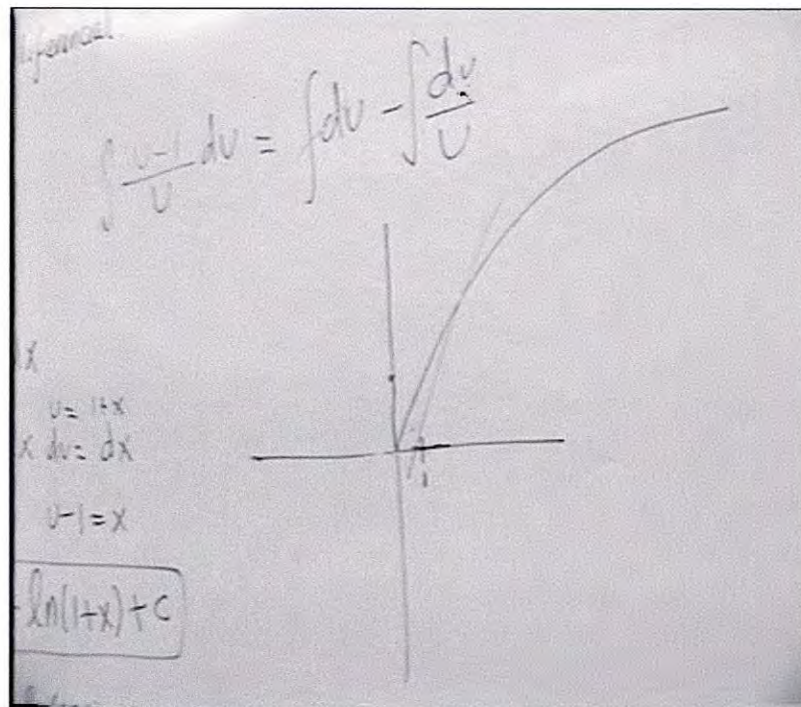 ∫ (u-1)/u du = ∫du - ∫ du/u
x
u = 1+x
x du = dx
u-1 = x
1
- ln(1+x) + C